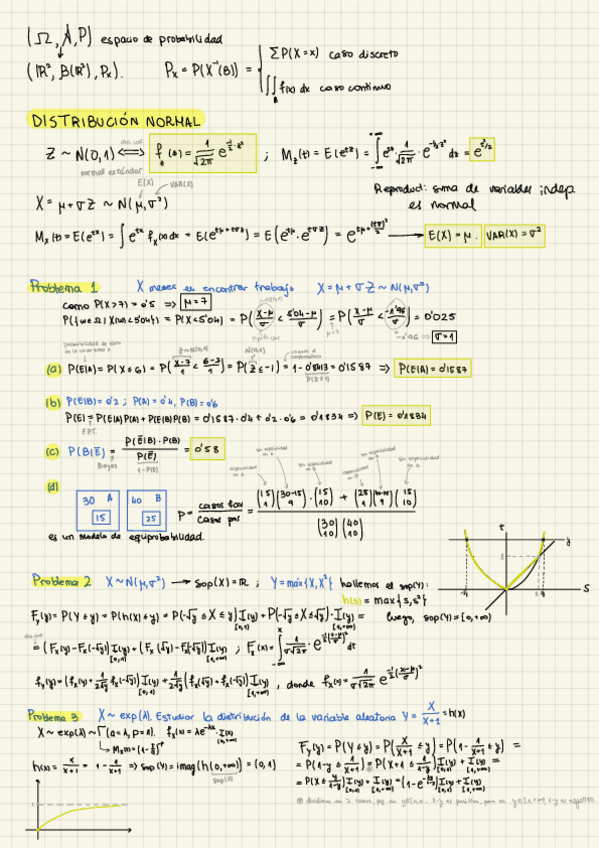 (Ω, A, P) espacio de probabilidad
(ℝ², B(ℝ²), Pₓ). Pₓ = P(X⁻¹(B)) = { ∑ P(X=x) caso discreto
∬_B f(x) dx caso continuo
DISTRIBUCIÓN NORMAL
Z ~ N(0,1) ⟺ f_z(z) = 1/√2π e^(-½·z²) ; M_z(t) = E(e^(tz)) = ∫ e^(tz) · 1/√2π · e^(-½·z²) dz = e^(t²/2)
normal estándar
E(X) VAR(X)
Reproduct: suma de variables indep.
es normal
X = μ + σZ ~ N(μ, σ²)
Mₓ(t) = E(e^(tx)) = ∫ e^(tx) fₓ(x) dx = E(e^(tμ+tσz)) = E(e^(tμ) · e^(tσz)) = e^(tμ + (tσ)²/2) → E(X) = μ. VAR(X) = σ²
Problema 1 X meses en encontrar trabajo X = μ + σZ ~ N(μ, σ²)
como P(X>7) = 0'5 ⇒ μ = 7
P({w∈Ω | X(w)<5'04}) = P(X<5'04) = P(X-μ/σ < 5'04-μ/σ) = P(X-μ/σ < -1'96/σ) = 0'025
-1'96 ⇒ σ=1
(a) P(E|A) = P(X≤6) = P(X-7/1 < 6-7/1) = P(Z≤-1) = 1-0'8413 = 0'1587 ⇒ P(E|A) = 0'1587
(b) P(E|B) = 0'2 ; P(A) = 0'4, P(B) = 0'6
P(E) = P(E|A)P(A) + P(E|B)P(B) = 0'1587·0'4 + 0'2·0'6 = 0'1834 ⇒ P(E) = 0'1834
(c) P(B|Ē) = P(Ē|B)·P(B) / P(Ē) = 0'58
Bayes 1-P(E)
(d)
30 A 15 40 B 25 P = casos fav / casos pos = (15 1)(30-15 9)·(15 10) + (25 1)(15 9)(15 10) / (30 10)(40 10)
es un modelo de equiprobabilidad.
t
y
s
Problema 2 X~N(μ,σ²) → Sop(X) = ℝ ; Y = máx{X, X²} hallemos el sop(Y):
h(s) = max{s, s²}
F_Y(y) = P(Y≤y) = P(h(X)≤y) = P(-√y ≤ X ≤ y)·I(y)[0,1) + P(-√y ≤ X ≤ √y)·I(y)[1,+∞) = luego, sop(Y) = [0,+∞)
= (Fₓ(y) - Fₓ(-√y)) I(y)[0,1) + (Fₓ(√y) - Fₓ(-√y)) I(y)[1,+∞) ; Fₓ(x) = ∫ 1/σ√2π · e^(-½(t-μ/σ)²) dt
f_Y(y) = (fₓ(y) + 1/2√y fₓ(-√y)) I(y)[0,1) + 1/2√y (fₓ(√y) + fₓ(-√y)) I(y)[1,+∞) , donde fₓ(x) = 1/σ√2π e^(-½(x-μ/σ)²)
Problema 3 X~exp(λ). Estudiar la distribución de la variable aleatoria Y = X/X+1 = h(X)
X~exp(λ) ~ Γ(a=λ, p=1). fₓ(x) = λe^(-λx)·I(x)[0,+∞)
h(x) = x/x+1 = 1 - 1/x+1 ⇒ Sop(Y) = imag(h(0,+∞)) = (0,1)
sop(X)
F_Y(y) = P(Y≤y) = P(X/X+1 ≤ y) = P(1 - 1/X+1 ≤ y) =
= P(1-y ≤ 1/X+1) = P(X+1 ≤ 1/1-y) I(y)[0,1) + I(y)[1,+∞) =
= P(X ≤ y/1-y) I(y)[0,1) + I(y)[1,+∞) = (1 - e^(-λy/1-y)) I(y)[0,1) + I(y)[1,+∞)